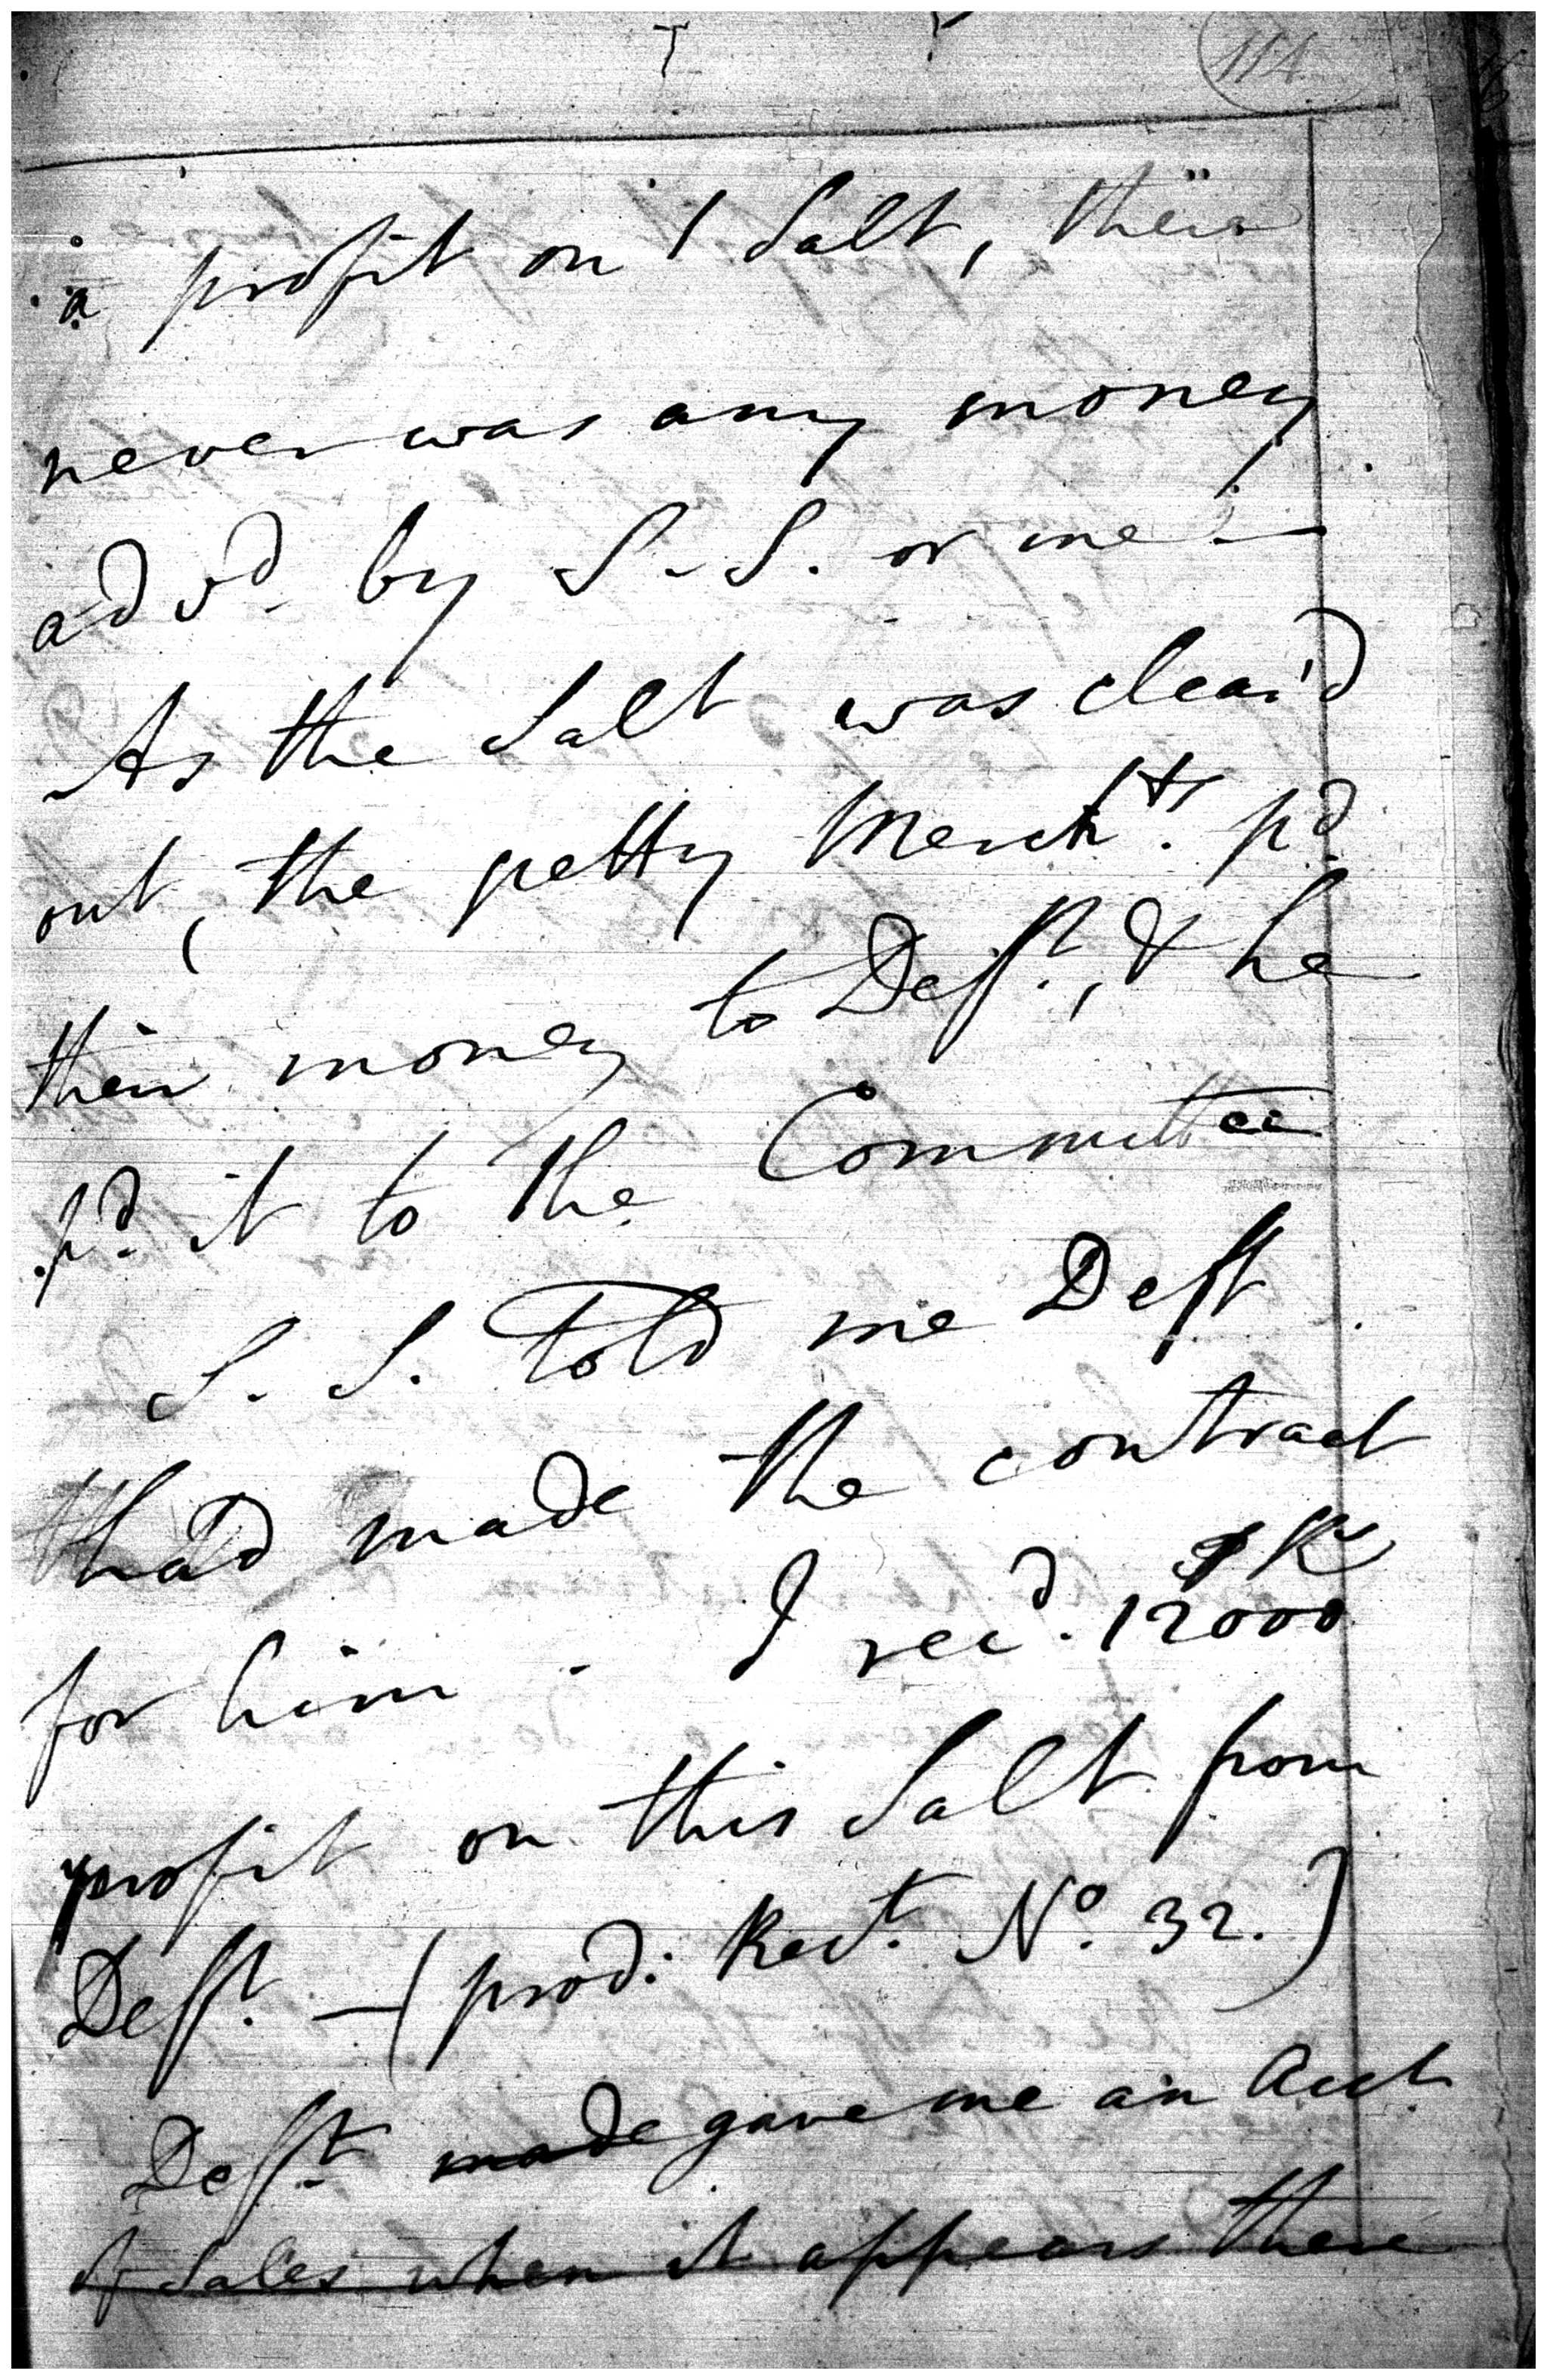 114
a profit on / Salt, there
never was any money
advd. by S. S. or me —
As the Salt was clear'd
out, the petty Merchts. pd.
their money to Defft., & he
pd. it to the Committee
S. S. told me Defft
had made the contract
for him - I recd. 12000
profit on this Salt from
Defft. — (prod: Rect. No. 32.)
Defft. made gave me an Acct
of Sales when it appears there